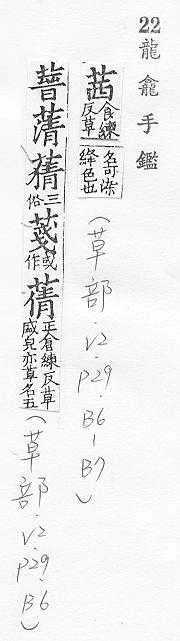 22 龍龕手鑑
茜 食練反草名可染絳色也（草部.V2.P29.B6-B7）
三俗 或作 蒨 正倉練反草盛皃亦草名五（草部.V2.P29.B6）